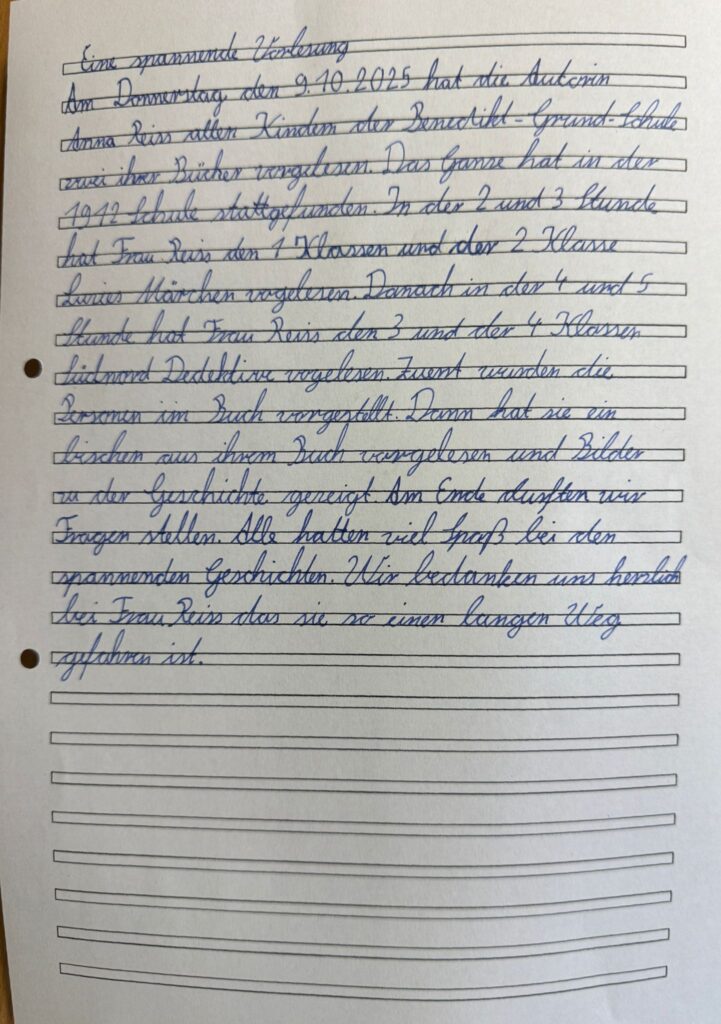 Eine spannende Vorlesung
Am Donnerstag den 9.10.2025 hat die Autorin
Anna Reiss allen Kindern der Benedikt-Grund-Schule
zwei ihrer Bücher vorgelesen. Das Ganse hat in der
1912 Schule stattgefunden. In der 2 und 3 Stunde
hat Frau Reiss den 1 Klassen und der 2 Klasse
Luries Märchen vogelesen. Danach in der 4 und 5
Stunde hat Frau Reiss den 3 und der 4 Klassen
Südnord Dedektive vogelesen. Zuerst wurden die
Personen im Buch vorgestellt. Dann hat sie ein
bischen aus ihrem Buch vorgelesen und Bilder
zu der Geschichte gezeigt. Am Ende durften wir
Fragen stellen. Alle hatten viel Spaß bei den
spannenden Geschichten. Wir bedanken uns herzlich
bei Frau Reiss das sie so einen langen Weg
gefahren ist.